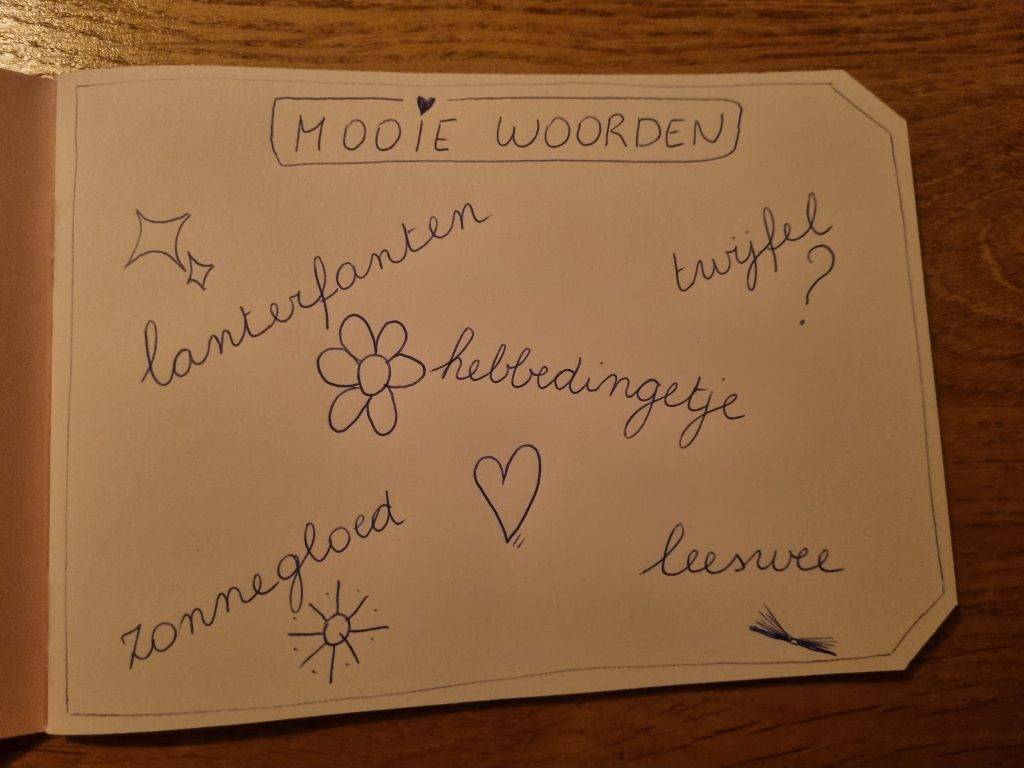 MOOIE WOORDEN
lanterfanten
twijfel
?
hebbedingetje
zonnegloed
leeswee